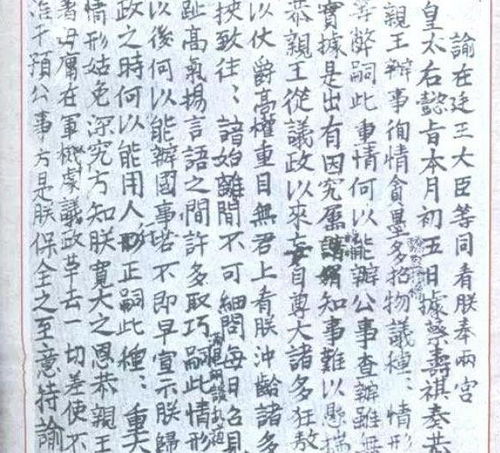 諭在廷王大臣等同看朕奉兩宮
皇太后懿旨本月初五日據蔡壽祺奏恭
親王辦事徇情貪墨多招物議種〻情形
等弊嗣此重情何以能辦公事查辦雖無
實據是出有因究屬知事難以懸揣
恭親王從議政以來妄自尊大諸多狂敖
以仗爵高權重目無君上看朕沖齡諸多
挾致往〻諳始離間不可細問每日召見
趾高氣揚言語之間許多取巧嗣此情形
以後何以能辦國事若不即早宣示朕歸
政之時何以能用人行正嗣此種〻重大
情形姑免深究方知朕寬大之恩恭親王
著毋庸在軍機處議政革去一切差使不
准干預公事方是朕保全之至意特諭